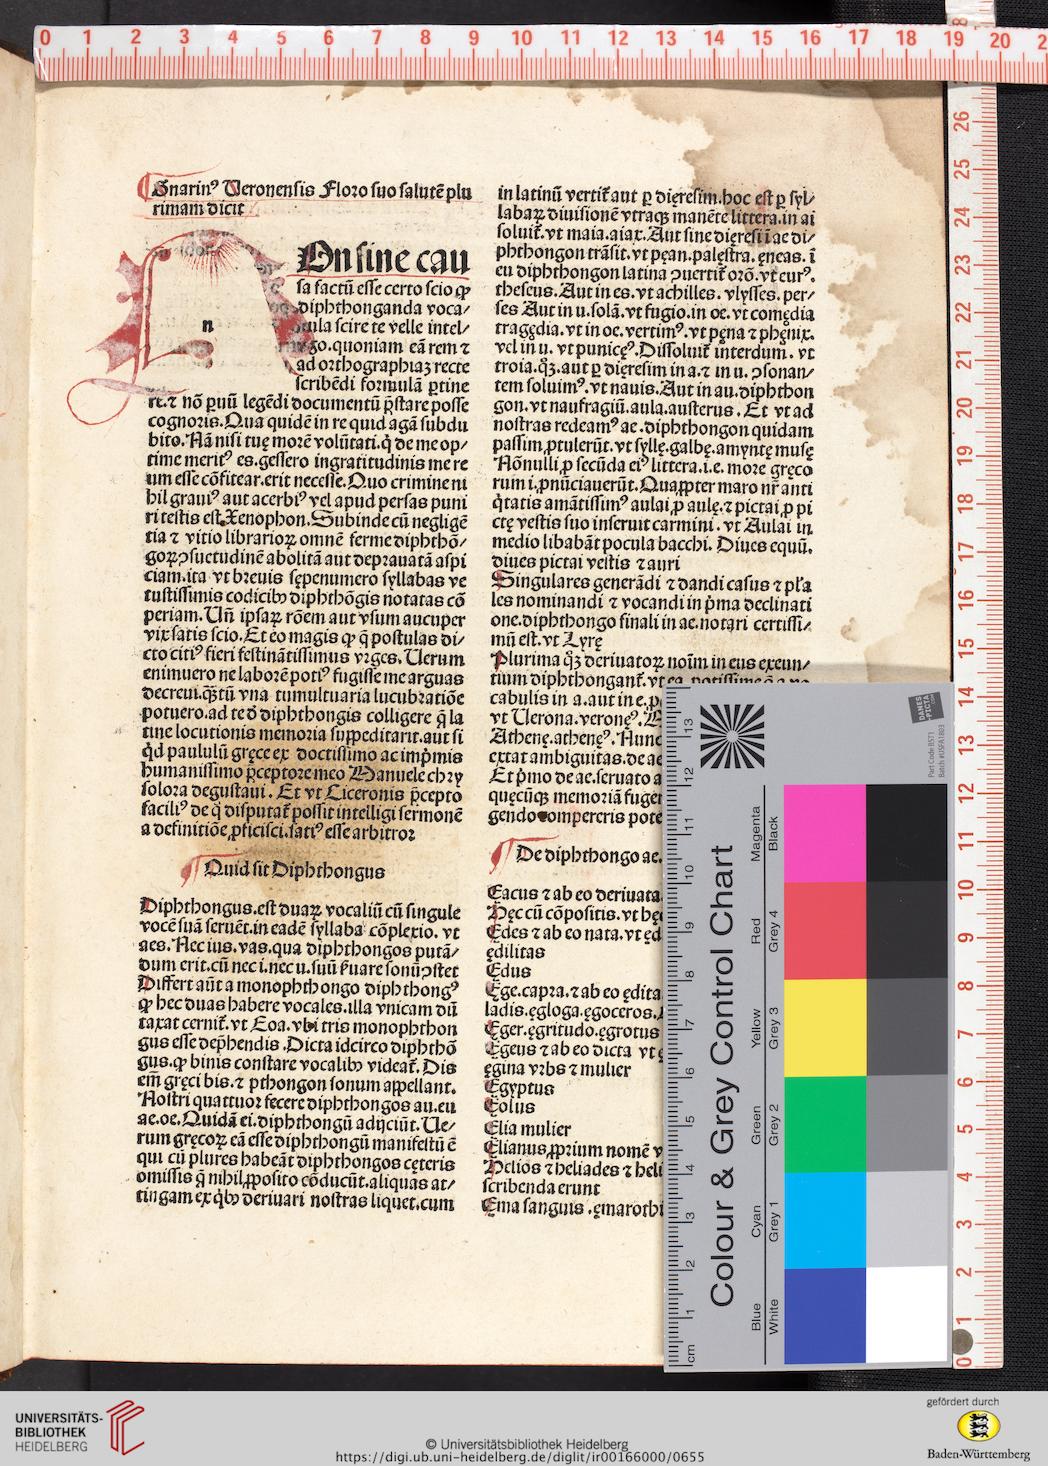 Gnarinꝰ Veronensis Floro suo salutē plu
rimam dicit
On sine cau
sa factū esse certo scio ꝙ
diphthonganda voca/
bula scire te velle intel/
go.quoniam eā rem ⁊
ad orthographiaꝫ recte
scribēdi formulā ꝑtine
re.⁊ nō ꝑuū legēdi documentū p̄stare posse
cognoris.Qua quidē in re quid agā subdu
bito.Nā nisi tuę morē volūtati.q̇ de me op/
time meritꝰ es.gessero ingratitudinis me re
um esse cōfitear.erit necesse.Quo crimine ni
hil grauiꝰ aut acerbiꝰ vel apud persas puni
ri testis est.Xenophon.Subinde cū negligē
tia ⁊ vitio librarioꝝ omnē ferme diphthō/
goꝝ ꝯsuetudinē abolitā aut deprauatā aspi
ciam.ita vt breuis sępenumero syllabas ve
tustissimis codicibꝰ diphthōgis notatas cō
periam.Uñ ipsaꝝ rōem aut vsum aucuper
vix satis scio.Et eo magis ꝙ q̄ postulas di/
cto citiꝰ fieri festināttissimus vrges.Uerum
enimuero ne laborē potiꝰ fugisse me arguas
decreui.q̄tū vna tumultuaria lucubratiōe
potuero.ad te ð diphthongis colligere q̄ la
tine locutionis memoria suppeditarit.aut si
qd paululū gręce ex doctissimo ac imp̄mis
humanissimo p̄ceptore meo Manuele chry
solora degustaui.Et vt Ciceronis p̄cepto
faciliꝰ de q̇ disputat̄ possit intelligi sermonē
a definitiōe ꝓficisci.satiꝰ esse arbitror
Quid sit Diphthongus
Diphthongus.est duaꝝ vocaliū cū singule
vocē suā seruēt.in eadē syllaba cōplexio.vt
aes.Nec ius.vas.qua diphthongos putā/
dum erit.cū nec i.nec u.suū ẜuare sonū ꝯstet
Differt aūt a monophthongo diphthongꝰ
ꝙ hec duas habere vocales.illa vnicam dū
taxat cernit̄.vt Eoa.vbi tris monophthon
gus esse dep̄hendis.Dicta idcirco diphthō
gus.ꝙ binis constare vocalibꝰ videat̄.Dis
em̄ gręci bis.⁊ pthongon sonum appellant.
Nostri quattuor fecere diphthongos au.eu
ae.oe.Quidā ei.diphthongū adijciūt.Ue/
rum gręcoꝝ eā esse diphthongū manifestū ē
qui cū plures habeāt diphthongos cęteris
omissis q̄ nihil ꝓposito cōducūt.aliquas at/
tingam ex qbꝰ deriuari nostras liquet.cum
in latinū vertit̄ aut ꝑ dięresim.hoc est ꝑ syl/
labaꝝ diuisionē vtraqꝫ manēte littera.in ai
soluit̄.vt maia.aiax.Aut sine dięresi ī ae di/
phthongon trāsit.vt pęan.palęstra.ęneas.ī
eu diphthongon latina ꝯuertit̄ orō.vt eurꝰ.
theseus.Aut in es.vt achilles.vlysses.per/
ses Aut in u.solā.vt fugio.in oe.vt comędia
tragędia.vt in oe.vertimꝰ.vt pęna ⁊ phęnix.
vel in u.vt punicęꝰ.Dissoluit̄ interdum.vt
troia.q̄ꝫ.aut ꝑ dięresim in a.⁊ in u.ꝯsonan/
tem soluimꝰ.vt nauis.Aut in au.diphthon
gon.vt naufragiū.aula.austerus.Et vt ad
nostras redeamꝰ ae.diphthongon quidam
passim ꝓtulerūt.vt syllę.galbę.amyntę musę
Nōnulli ꝓ secūda eiꝰ littera.i.e.more gręco
rum i.ꝓnūciauerūt.Quaꝓpter maro nr̄ anti
q̇tatis amātissimꝰ aulai ꝓ aulę.⁊ pictai ꝓ pi
ctę vestis suo inseruit carmini.vt Aulai in
medio libabāt pocula bacchi.Diues equū.
diues pictai vestis ⁊ auri
Singulares generādi ⁊ dandi casus ⁊ pl̄a
les nominandi ⁊ vocandi in p̄ma declinati
one.diphthongo finali in ae.notari certissi/
mū est.vt Lyrę
Plurima q̄ꝫ deriuatoꝝ noīm in eus exeun/
tium diphthongant̄.vt ea.potissime
cabulis in a.aut in e.p
vt Uerona.veronęꝰ.
Athenę.athenęꝰ.Nunc
extat ambiguitas.de ae
Et p̄mo de ae.seruato a
quęcūqꝫ memoriā fuge
gendo compereris pote
De diphthongo ae.
Eacus ⁊ ab eo deriuata
Hęc cū cōpositis.vt hę
Edes ⁊ ab eo nata.vt ęd
ędilitas
Edus
Ege.capra.⁊ ab eo ędita
ladis.ęgloga.ęgoceros.
Eger.ęgritudo.ęgrotus
Egeus ⁊ ab eo dicta vt
ęgina vrbs ⁊ mulier
Egyptus
Eolus
Elia mulier
Elianus ꝓprium nomē v
Helios ⁊ heliades ⁊ heli
scribenda erunt
Ema sanguis.ęmarothi
0 1 2 3 4 5 6 7 8 9 10 11 12 13 14 15 16 17 18 19 20 2
26
25
24
23
22
21
20
19
18
17
16
15
14
13
12
11
10
9
8
7
6
5
4
3
2
1
0
DANES
-PICTA
.COM
Part Code BST1
Colour & Grey Control Chart
13
12
11
10
9
8
7
6
5
4
3
2
1
cm
Blue Cyan Green Yellow Red Magenta
White Grey 1 Grey 2 Grey 3 Grey 4 Black
UNIVERSITÄTS-
BIBLIOTHEK
HEIDELBERG
© Universitätsbibliothek Heidelberg
https://digi.ub.uni-heidelberg.de/diglit/ir00166000/0655
gefördert durch
Baden-Württemberg